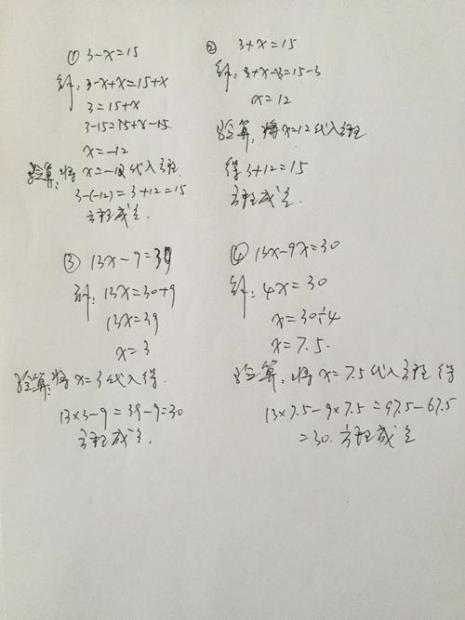 ① 3-x=15
解: 3-x+x=15+x
3=15+x
3-15=15+x-15
x=-12
验算: 将x=-12代入方程
3-(-12)=3+12=15
方程成立.
② 3+x=15
解: 3+x-3=15-3
x=12
验算, 将x=12代入方程
得3+12=15
方程成立.
③ 13x-9=30
解: 13x=30+9
13x=39
x=3
验算: 将x=3代入得
13×3-9=39-9=30
方程成立.
④ 13x-9x=30
解: 4x=30
x=30÷4
x=7.5.
验算: 将x=7.5代入方程得
13×7.5-9×7.5=97.5-67.5
=30. 方程成立